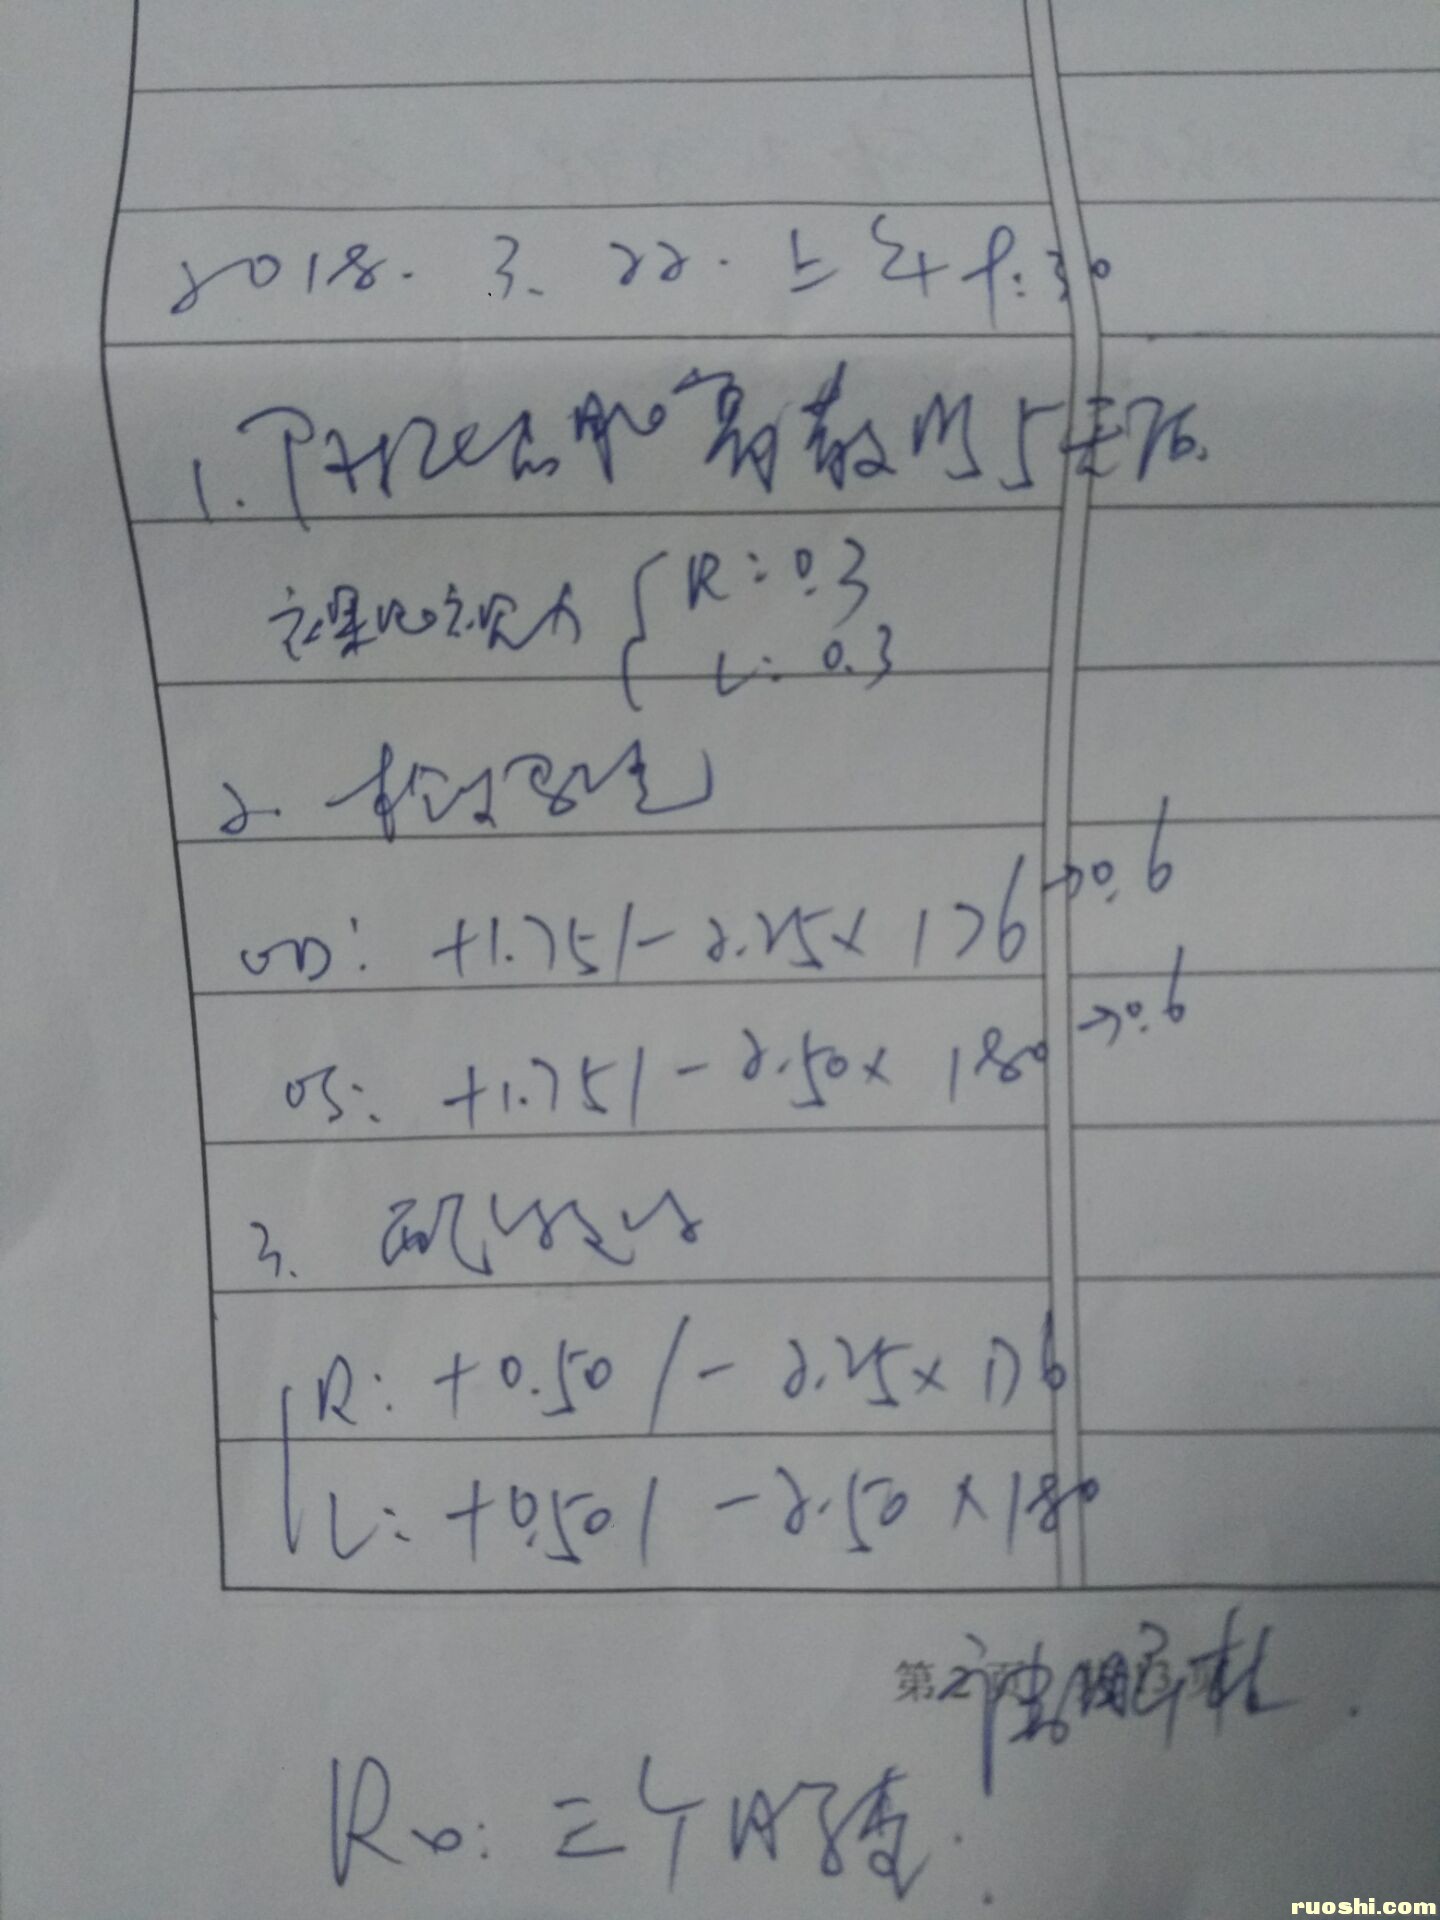 2018. 3. 22. 上午 9:30
1. 阿托品眼膏散瞳5天后
裸眼视力 { R: 0.3
L: 0.3
2. 检影验光
OD: +1.75/-2.25×176 → 0.6
OS: +1.75/-2.50×180 → 0.6
3. 配镜处方
R: +0.50/-2.25×176
L: +0.50/-2.50×180
第2页
Rx: 三个月复查.
ruoshi.com